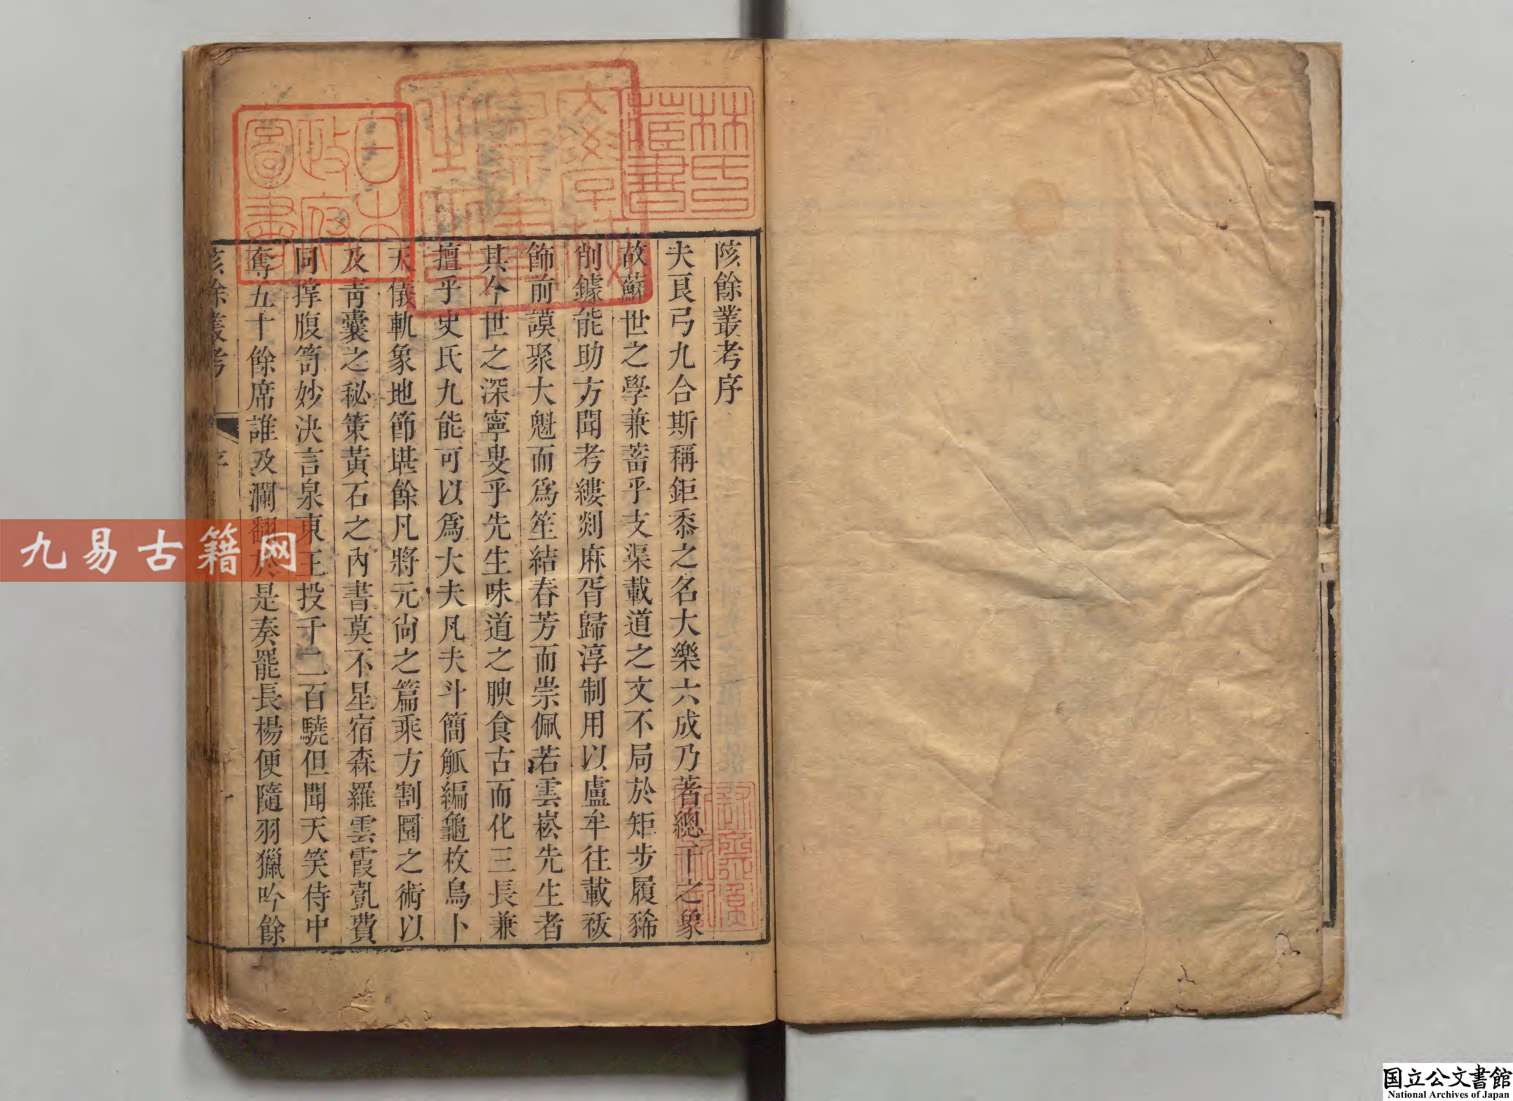 陔餘叢考序
夫艮弓九合斯稱鉅黍之名大樂六成乃著總干之象
故蘇世之學兼蓄乎支渠載道之文不局於矩步履豨
削鐻能助方聞考縷剡麻胥歸淳制用以盧牟往載祓
飾前謨聚大魁而為笙結春芳而崇佩若雲崧先生者
其今世之深寧叟乎先生味道之腴食古而化三長兼
擅乎史氏九能可以為大夫凡夫斗簡觚編龜枚鳥卜
天儀軌象地節堪餘凡將元尙之篇乘方割圜之術以
及青囊之秘策黃石之內書莫不星宿森羅雲霞亃費
同撐腹笥妙決言泉東王投千二百驍但聞天笑侍中
奪五十餘席誰及瀾翻於是奏罷長楊便隨羽獵吟餘
陔餘叢考
序
林氏藏書
日本政府圖書
九易古籍网
国立公文書館
National Archives of Japan